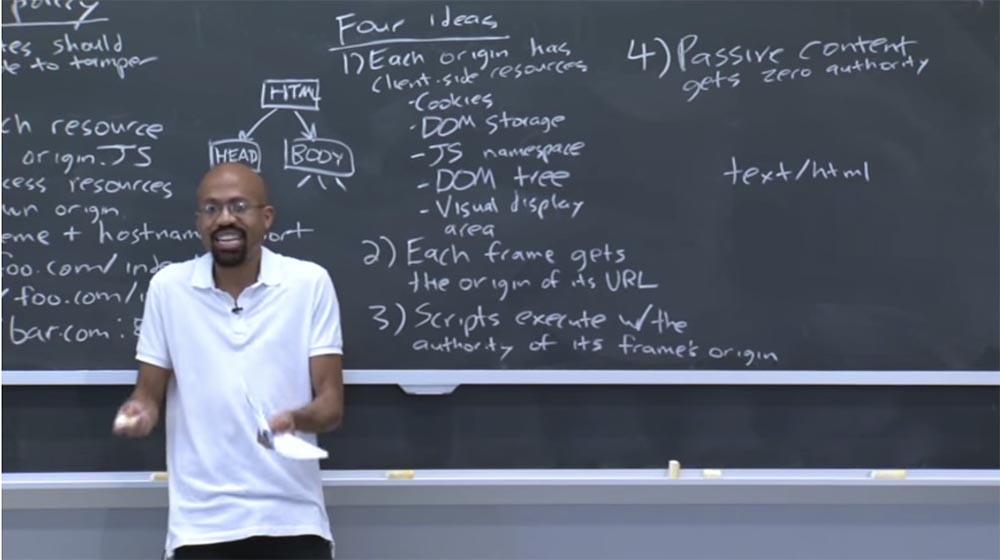 policy
should
to tamper
resource
origin. JS
resources
origin
+ hostname
foo.com/
foo.com/
bar.com:
HTML
HEAD
BODY
Four ideas
1) Each origin has
client-side resources
-Cookies
-DOM storage
-JS namespace
-DOM tree
-Visual display
area
2) Each frame gets
the origin of its URL
3) Scripts execute w/the
authority of its frame's origin
4) Passive content
gets zero authority
text/html